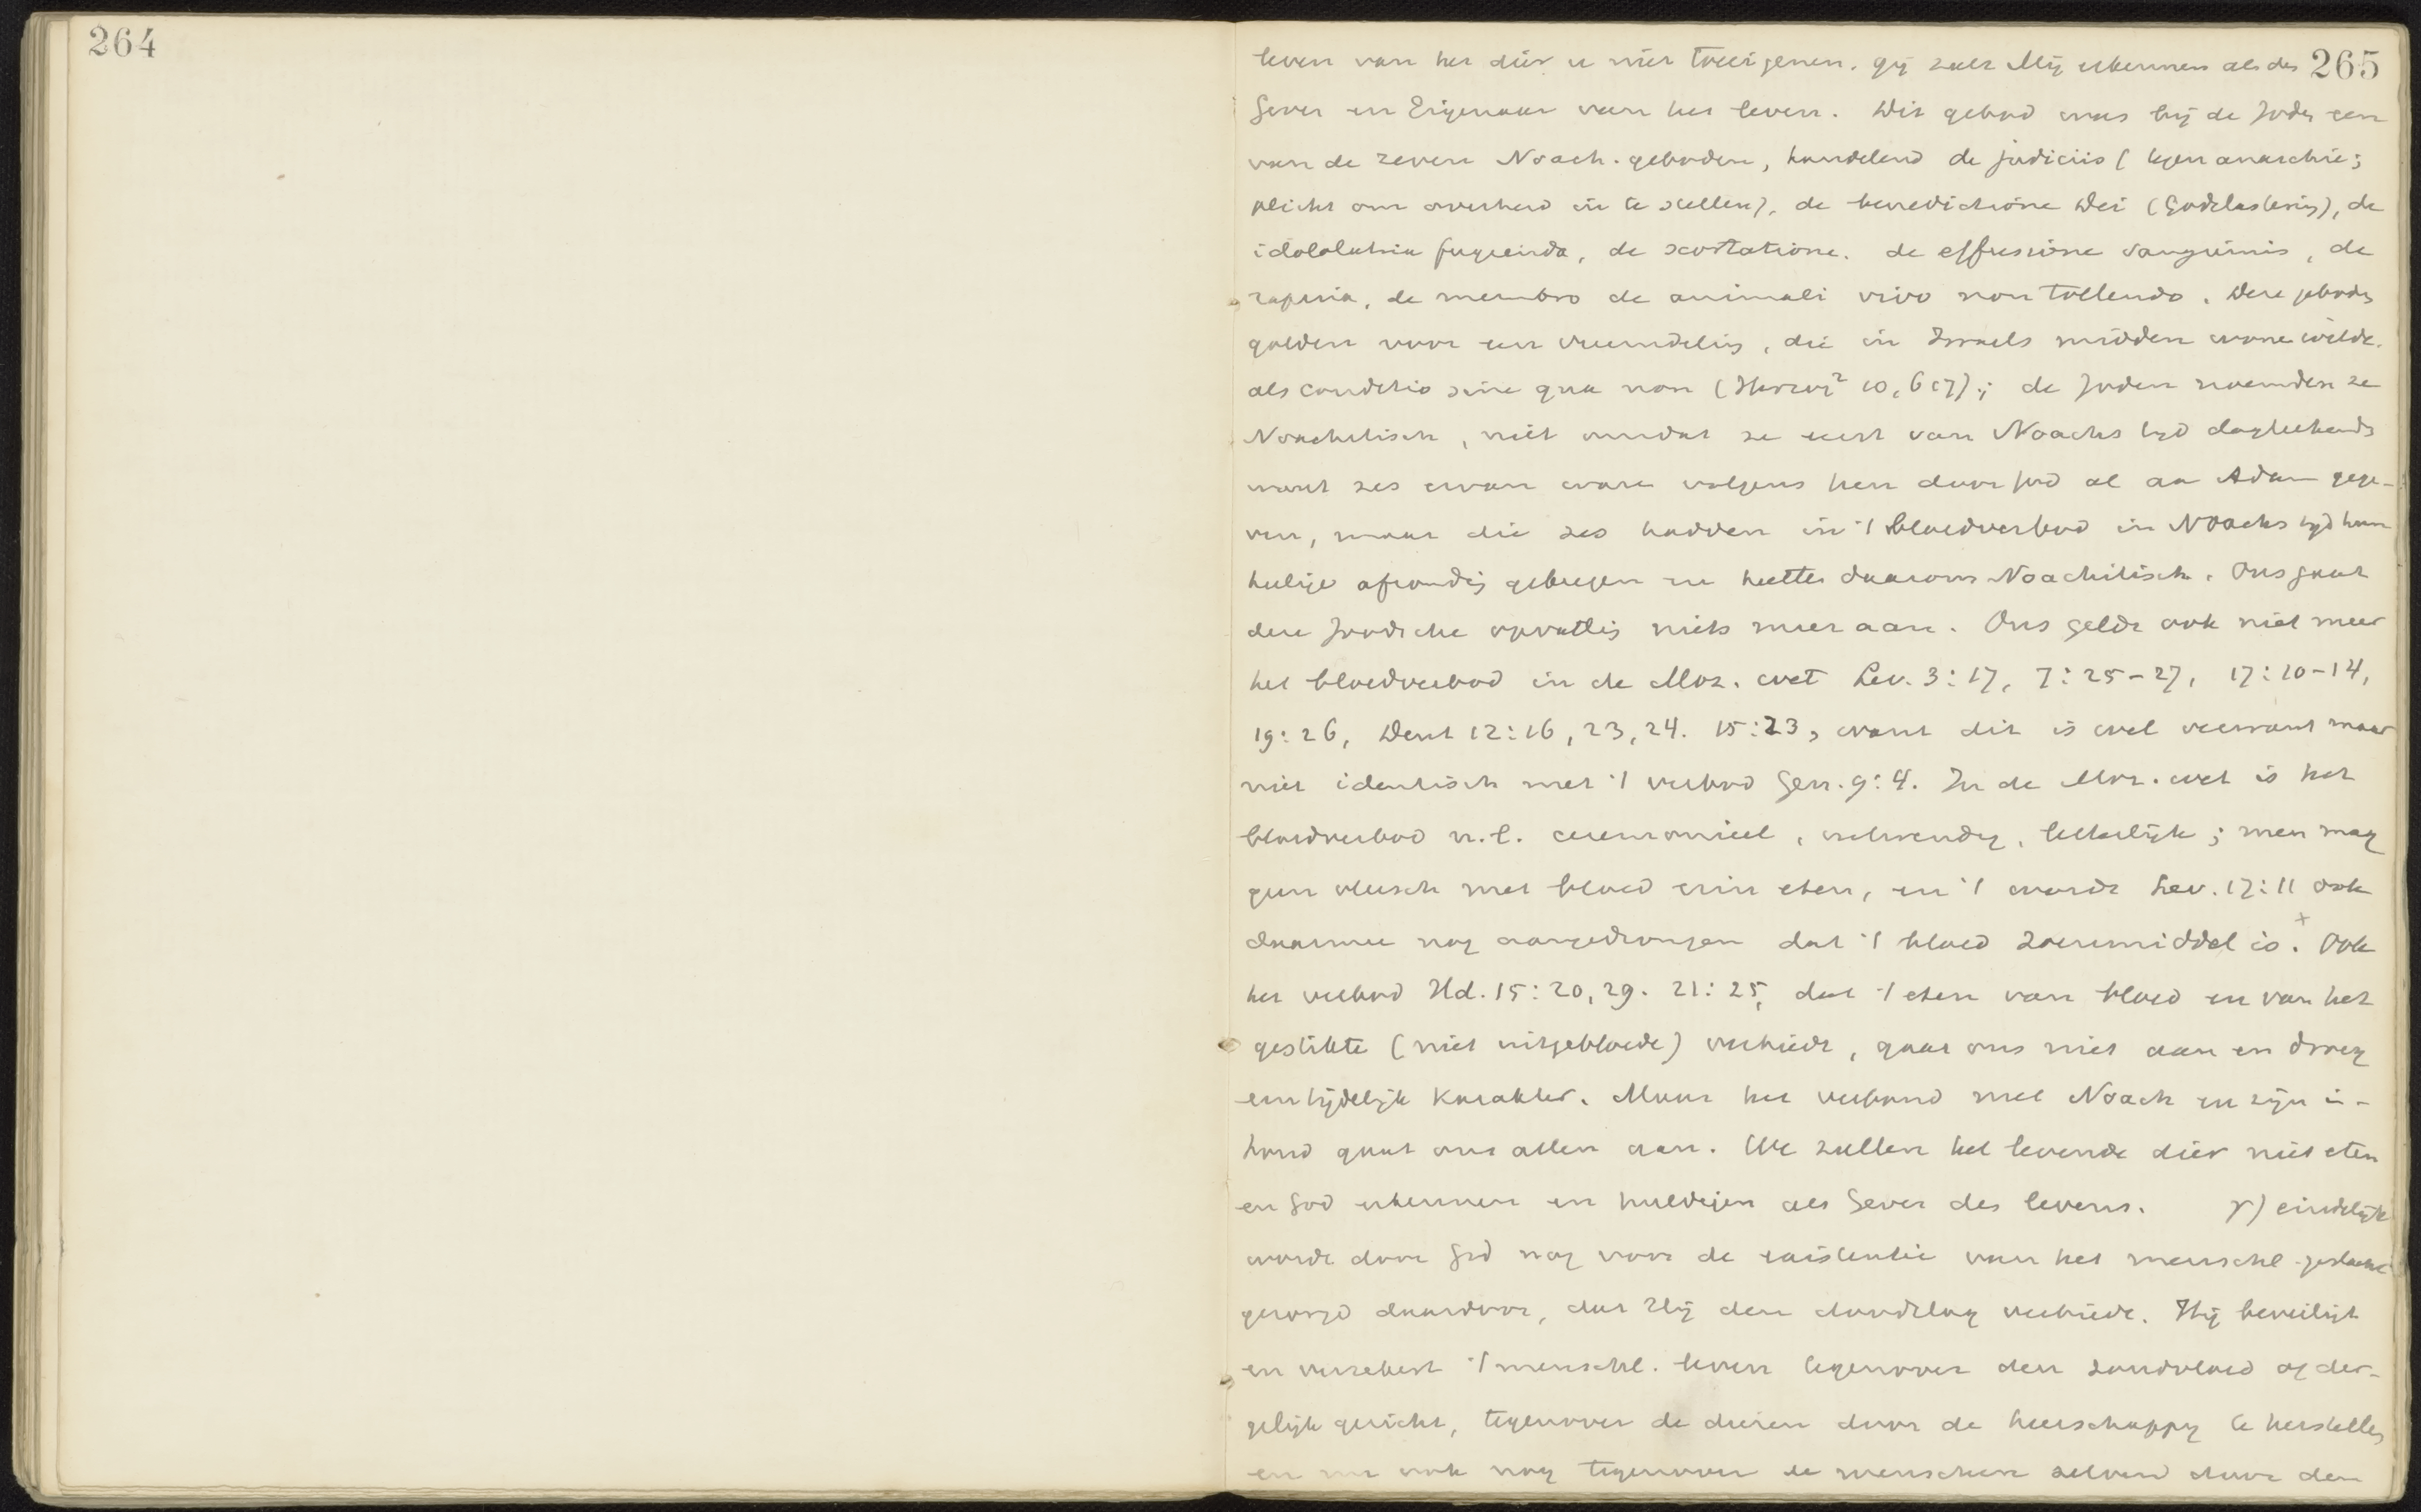 264
265
leven van het dier u niet toeeigenen. gij zult Mij erkennen als den
Gever en Eigenaar van het leven. Dit gebod was bij de Joden een
van de zeven Noach. geboden, handelend de judiciis (tegen anarchie;
plicht om overheid in te stellen), de benedictione Dei (Godslastering), de
idololatria fugienda, de scortatione. de effusione sanguinis, de
rapina, de membro de animali vivo non tollendo. Deze geboden
golden voor een vreemdeling, die in Israels midden wonen wilde.
als conditio sine qua non (Herzog² 10, 617); de Joden noemden ze
Noachitisch, niet omdat ze eerst van Noachs tijd dagteekenden
want zes ervan waren volgens hen door God al aan Adam gege-
ven, maar die zes hadden in 't bloedverbod in Noachs tijd hun
heilige afronding gekregen en heetten daarom Noachitisch. Ons gaat
deze Joodsche opvatting niets meer aan. Ons geldt ook niet meer
het bloedverbod in de Moz. wet Lev. 3:17, 7:25-27, 17:10-14,
19:26, Deut 12:16, 23, 24. 15:23, want dit is wel verwant maar
niet identisch met 't verbod Gen. 9:4. In de Moz. wet is het
bloedverbod n.l. ceremonieel, uitwendig, letterlijk; men mag
geen vleesch met bloed erin eten, en 't wordt Lev. 17:11 ook
daarmee nog aangedrongen dat 't bloed zoenmiddel is.+ Ook
het verbod Hd. 15:20, 29. 21:25, dat 't eten van bloed en van het
gestikte (niet uitgebloede) verbiedt, gaat ons niet aan en droeg
een tijdelijk karakter. Maar het verbond met Noach en zijn in-
houd gaat ons allen aan. We zullen het levende dier niet eten
en God erkennen en huldigen als Gever des levens. γ) eindelijk
wordt door God nog voor de existentie van het menschl. geslacht
gezorgd daardoor, dat Hij den doodslag verbiedt. Hij beveiligt
en verzekert 't menschl. leven tegenover den zondvloed of der-
gelijk gericht, tegenover de dieren door de heerschappij te herstellen
en nu ook nog tegenover de menschen zelven door den